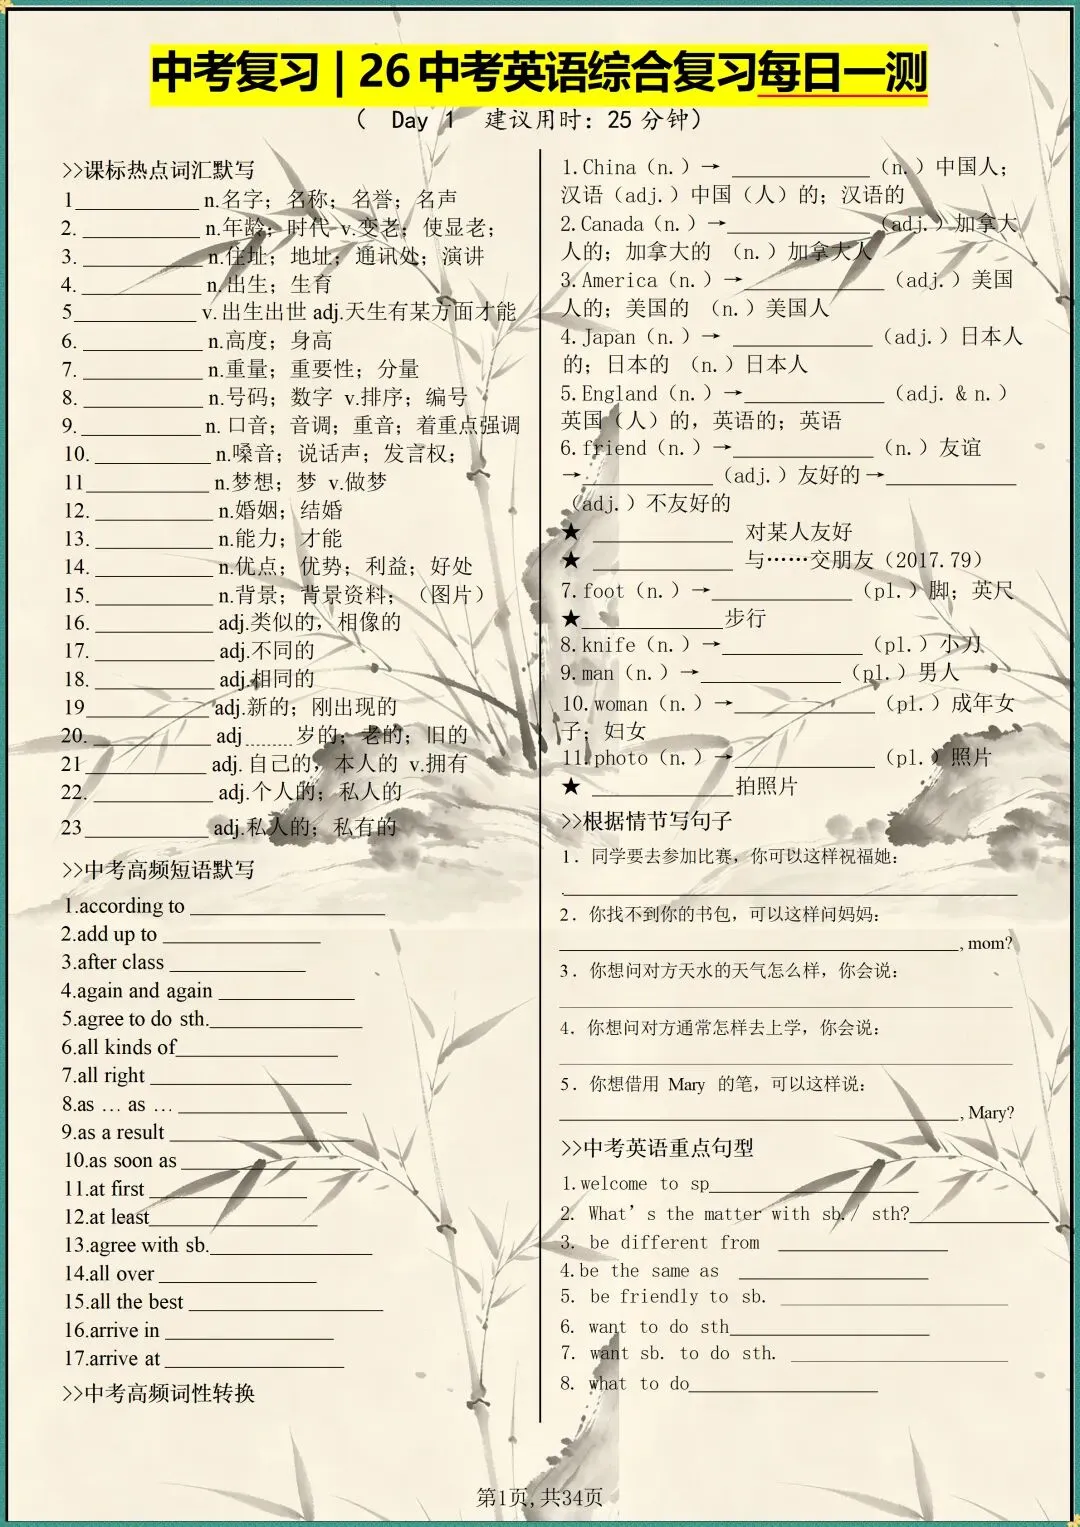 中考复习 | 26中考英语综合复习每日一测
（ Day 1 建议用时：25 分钟）
>>课标热点词汇默写
1____________ n.名字；名称；名誉；名声
2. ____________ n.年龄；时代 v.变老；使显老；
3. ____________ n.住址；地址；通讯处；演讲
4. ____________ n.出生；生育
5____________ v.出生出世 adj.天生有某方面才能
6. ____________ n.高度；身高
7. ____________ n.重量；重要性；分量
8. ____________ n.号码；数字 v.排序；编号
9. ____________ n. 口音；音调；重音；着重点强调
10. ____________ n.嗓音；说话声；发言权；
11____________ n.梦想；梦 v.做梦
12. ____________ n.婚姻；结婚
13. ____________ n.能力；才能
14. ____________ n.优点；优势；利益；好处
15. ____________ n.背景；背景资料；（图片）
16. ____________ adj.类似的，相像的
17. ____________ adj.不同的
18. ____________ adj.相同的
19____________ adj.新的；刚出现的
20. ____________ adj.......岁的；老的；旧的
21____________ adj. 自己的，本人的 v.拥有
22. ____________ adj.个人的；私人的
23____________ adj.私人的；私有的
>>中考高频短语默写
1.according to ____________
2.add up to ____________
3.after class ____________
4.again and again ____________
5.agree to do sth.____________
6.all kinds of____________
7.all right ____________
8.as … as … ____________
9.as a result ____________
10.as soon as ____________
11.at first ____________
12.at least____________
13.agree with sb.____________
14.all over ____________
15.all the best ____________
16.arrive in ____________
17.arrive at ____________
>>中考高频词性转换
1.China（n.）→ ____________（n.）中国人；
汉语（adj.）中国（人）的；汉语的
2.Canada（n.）→____________（adj.）加拿大
人的；加拿大的 （n.）加拿大人
3.America（n.）→____________（adj.）美国
人的；美国的 （n.）美国人
4.Japan（n.）→ ____________（adj.）日本人
的；日本的 （n.）日本人
5.England（n.）→____________（adj. & n.）
英国（人）的，英语的；英语
6.friend（n.）→____________（n.）友谊
→____________（adj.）友好的→____________
（adj.）不友好的
★ ____________ 对某人友好
★ ____________ 与……交朋友（2017.79）
7.foot（n.）→____________（pl.）脚；英尺
★____________步行
8.knife（n.）→____________（pl.）小刀
9.man（n.）→____________（pl.）男人
10.woman（n.）→____________（pl.）成年女
子；妇女
11.photo（n.）→____________（pl.）照片
★ ____________拍照片
>>根据情节写句子
1．同学要去参加比赛，你可以这样祝福她：
.____________
2．你找不到你的书包，可以这样问妈妈：
____________, mom?
3．你想问对方天水的天气怎么样，你会说：
____________
4．你想问对方通常怎样去上学，你会说：
____________
5．你想借用 Mary 的笔，可以这样说：
____________, Mary?
>>中考英语重点句型
1.welcome to sp____________
2. What's the matter with sb./ sth?____________
3. be different from ____________
4.be the same as ____________
5. be friendly to sb. ____________
6. want to do sth____________
7. want sb. to do sth. ____________
8. what to do____________
第1页,共34页